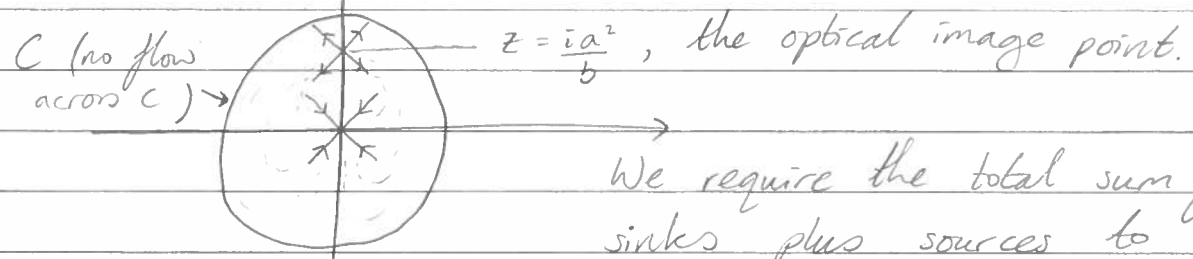 C (no flow
across C)
z = ia²/b, the optical image point.
We require the total sum
sinks plus sources to